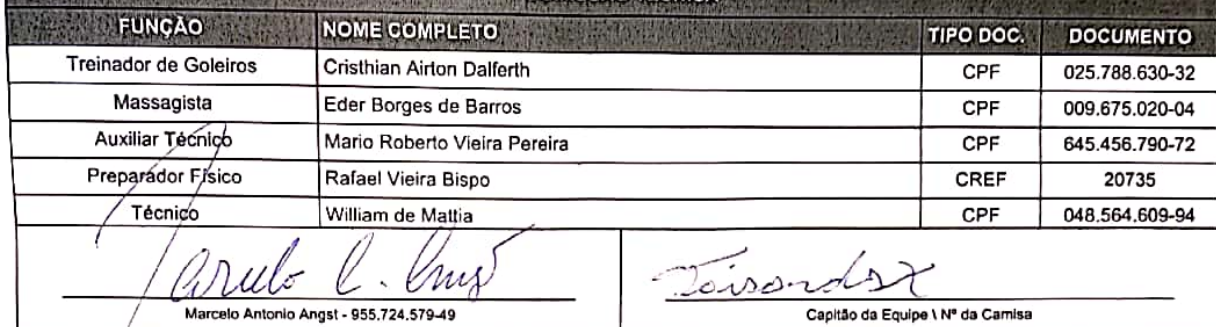 FUNÇÃO NOME COMPLETO TIPO DOC. DOCUMENTO
Treinador de Goleiros Cristhian Airton Dalferth CPF 025.788.630-32
Massagista Eder Borges de Barros CPF 009.675.020-04
Auxiliar Técnico Mario Roberto Vieira Pereira CPF 645.456.790-72
Preparador Físico Rafael Vieira Bispo CREF 20735
Técnico William de Mattia CPF 048.564.609-94
Marcelo Antonio Angst - 955.724.579-49
Capitão da Equipe \ Nº da Camisa